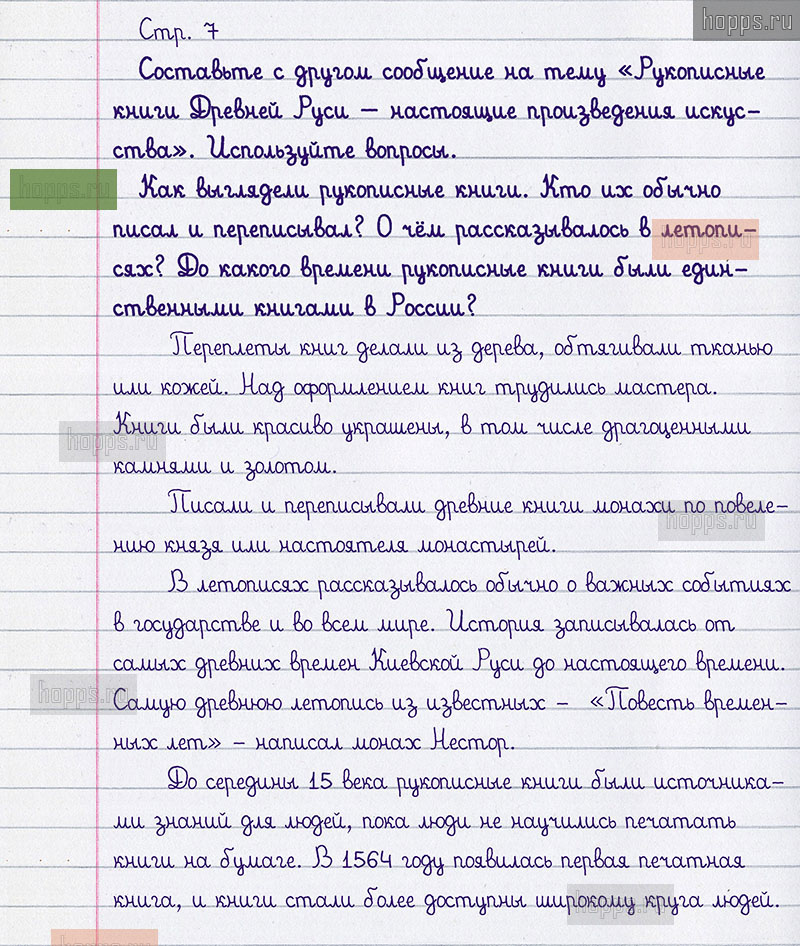 hopps.ru
Стр. 7
Составьте с другом сообщение на тему «Рукописные
книги Древней Руси – настоящие произведения искус-
ства». Используйте вопросы.
hopps.ru
Как выглядели рукописные книги. Кто их обычно
писал и переписывал? О чём рассказывалось в летопи-
hopps.ru
сях? До какого времени рукописные книги были един-
ственными книгами в России?
Переплеты книг делали из дерева, обтягивали тканью
или кожей. Над оформлением книг трудились мастера.
Книги были красиво украшены, в том числе драгоценными
hopps.ru
камнями и золотом.
Писали и переписывали древние книги монахи по повеле-
hopps.ru
нию князя или настоятеля монастырей.
В летописях рассказывалось обычно о важных событиях
в государстве и во всем мире. История записывалась от
самых древних времен Киевской Руси до настоящего времени.
hopps.ru
Самую древнюю летопись из известных – «Повесть времен-
ных лет» – написал монах Нестор.
До середины 15 века рукописные книги были источника-
ми знаний для людей, пока люди не научились печатать
книги на бумаге. В 1564 году появилась первая печатная
книга, и книги стали более доступны широкому круга людей.
hopps.ru
hopps.ru